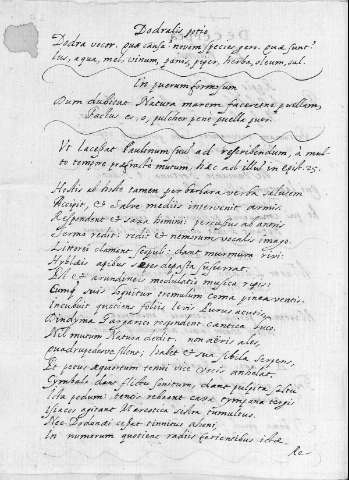 Dodralis potio
Dodra vocor. quæ causa? novem species gero. quæ sunt?
Ius, aqua, mel, vinum, panis, piper, herba, oleum, sal.
In puerum formosum
Dum dubitat Natura marem faceretne puellam,
Factus es, o, pulcher pene puella puer.
Ut lacessat Paulinum suū ad rescribendum, à mul
to tempore mutum, hæc ad illū in epist. 25.
Hostis ab hoste tamen per barbara verba salutem
Accipit, et Salve mediis intervenit armis.
Respondent et saxa homini: percussus ab antris
Sermo redit: redit et nemorum vocalis imago.
Littorei clamant scopuli: dant murmura rivi:
Hyblæis apibus sæpes depasta susurrat.
Est et arundineis modulatio musica ripis:
Cumq suis loquitur tremulum coma pinea ventis.
Incubuit quoties foliis levis Eurus acutis,
Dindyma Gargarico respondent cantica luco.
Nil mutum Natura dedit. non aëris ales,
quadrupedesve silent; habet et sua sibila serpens,
Et pecus æquoreum tenui vice vocis anhelat.
Cymbala dant flictu sonitum, dant pulpita saltu
Icta pedum: tentis reboant cava tympana tergis
Isiacos agitant Mareotica sistra tumultus.
Nec Dodonæi cessat tinnitus aheni,
In numerum quoties radiis ferientibus ictæ
Re-